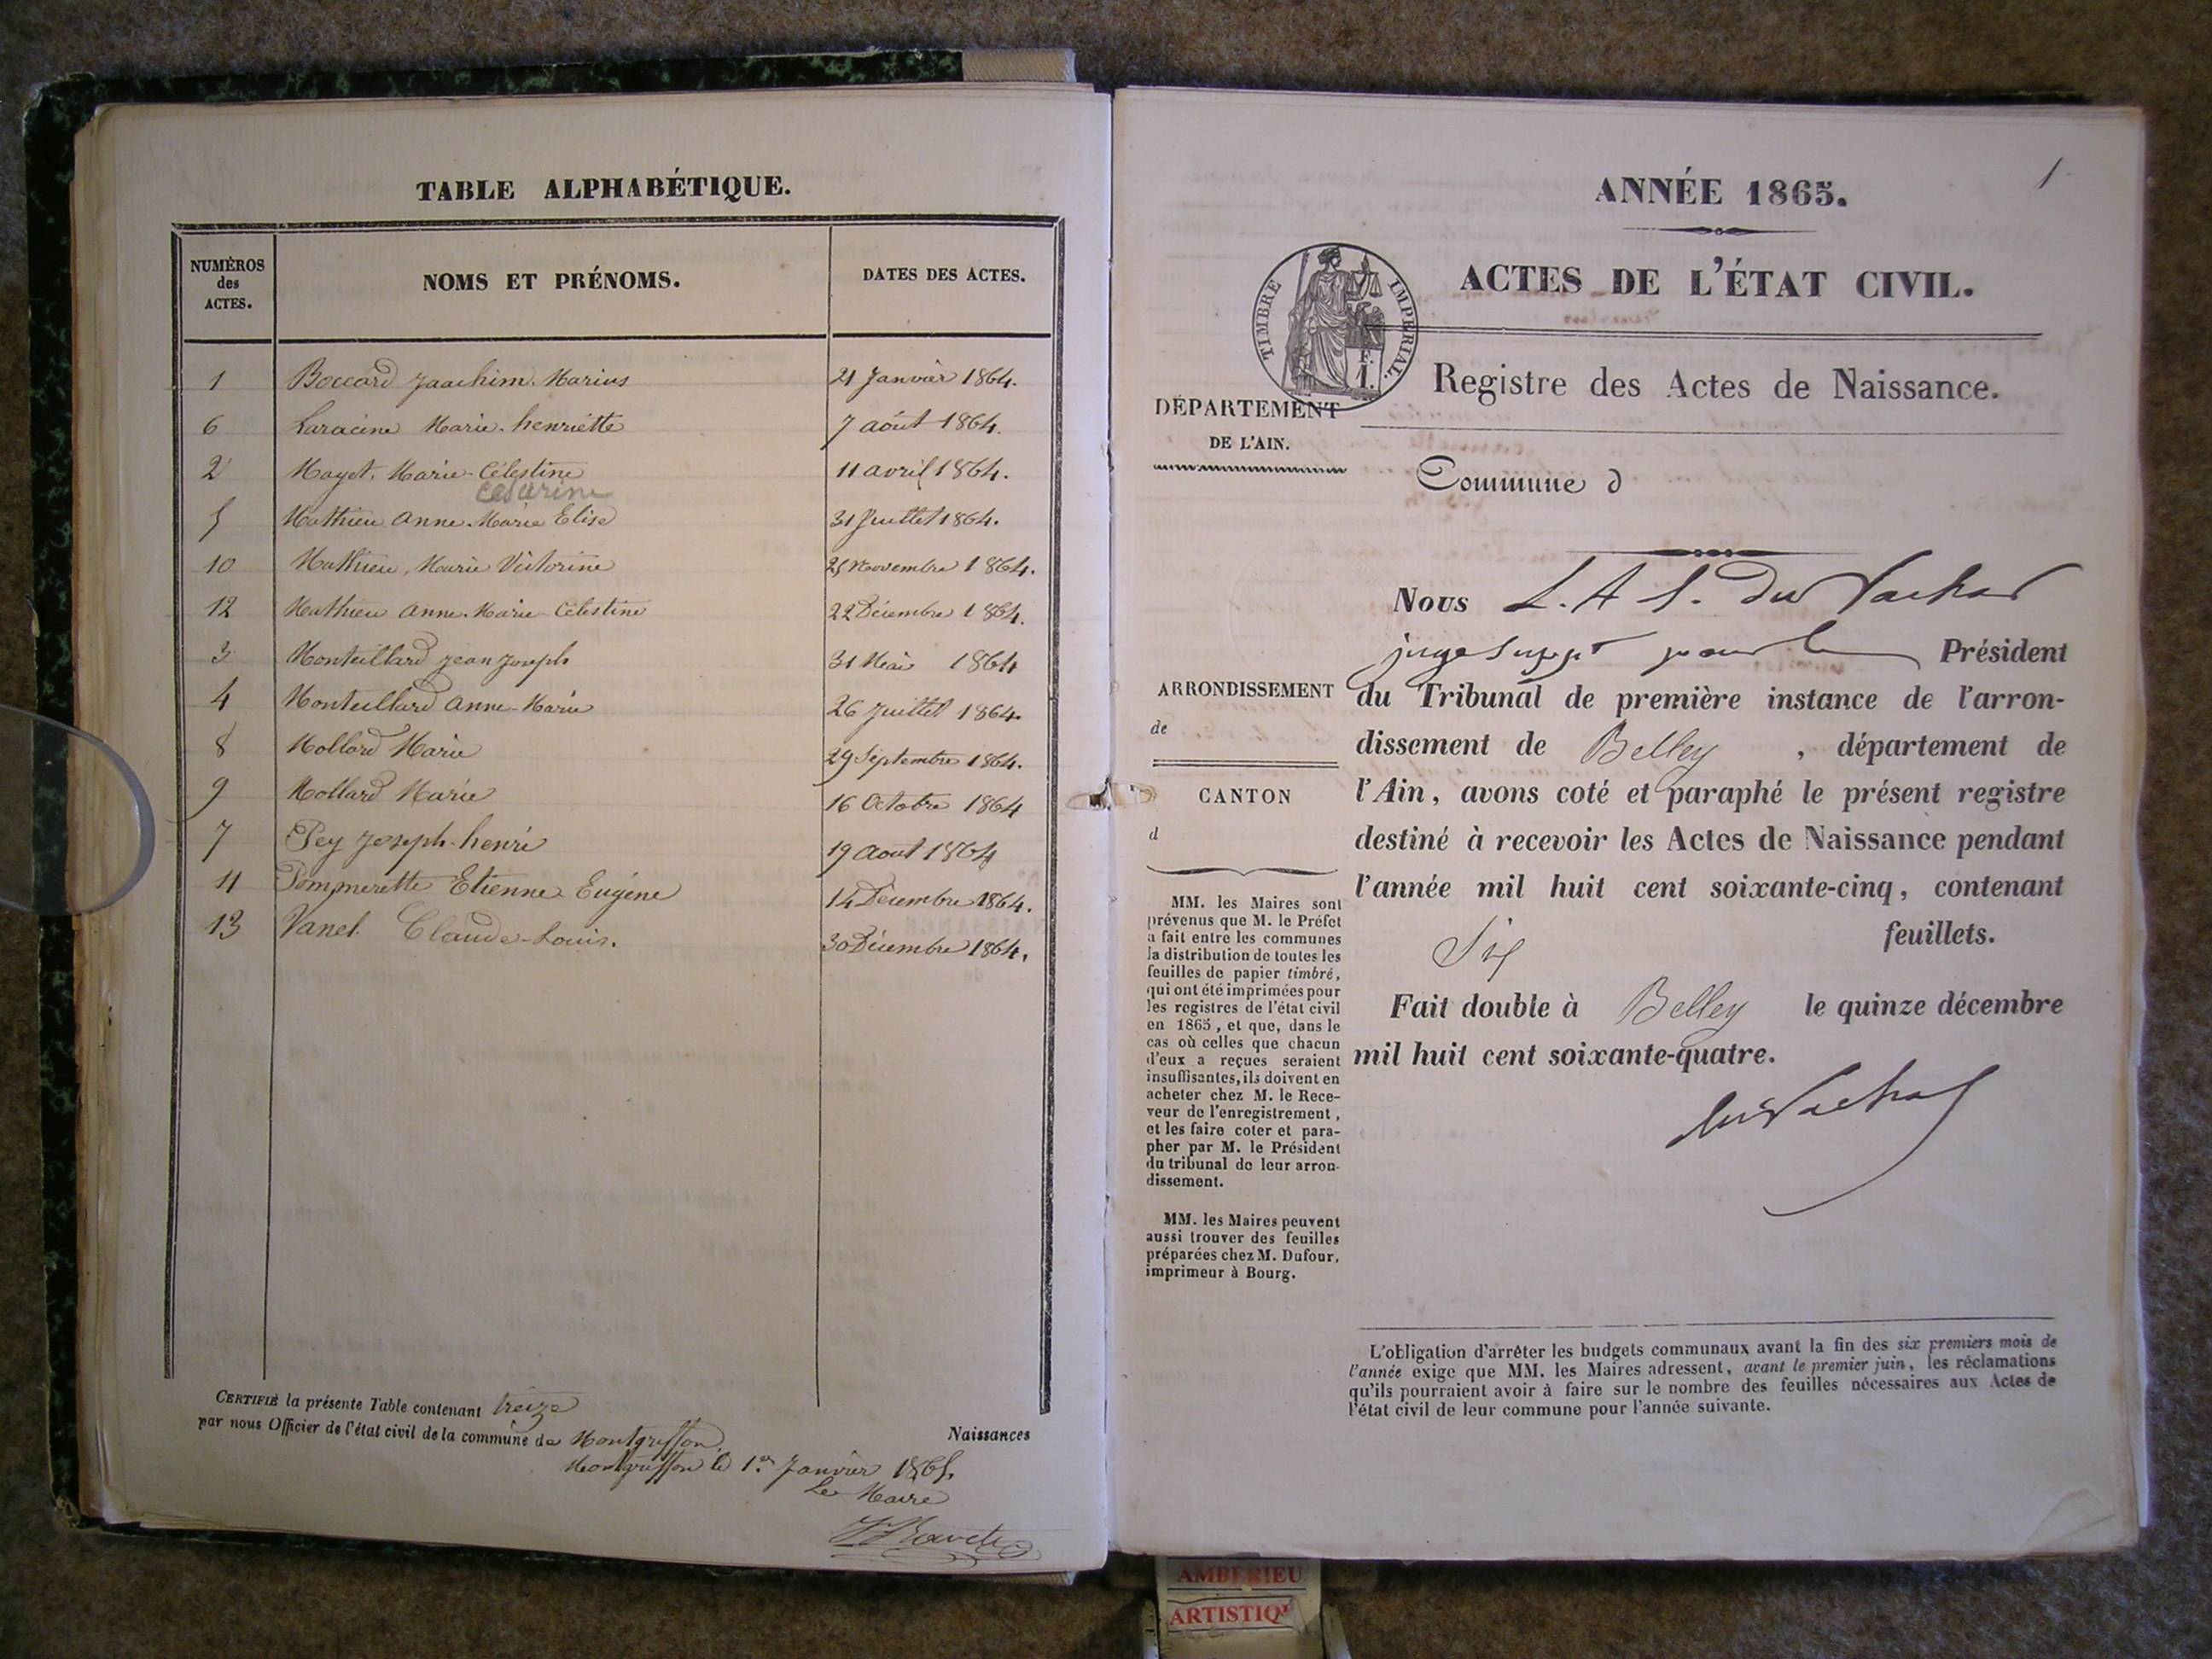 TABLE ALPHABÉTIQUE.
NUMÉROS des ACTES. NOMS ET PRÉNOMS. DATES DES ACTES.
1 Boccard Joachim Marius 21 Janvier 1864.
6 Laracine Marie henriette 7 août 1864.
2 Mayet Marie Célestine 11 avril 1864.
Césarine
5 Mathieu Anne Marie Elise 31 Juillet 1864.
10 Mathieu, Marie Victorine 25 Novembre 1864.
12 Mathieu Anne-Marie-Célestine 22 Décembre 1864.
3 Monteillard Jean Joseph 31 Mai 1864
4 Monteillard Anne-Marie 26 Juillet 1864.
8 Mollard Marie 29 Septembre 1864.
9 Mollard Marie 16 Octobre 1864
7 Pey Joseph-henri 19 Aout 1864
11 Pommerette Etienne Eugéne 14 Décembre 1864.
13 Vanel Claude-Louis. 30 Décembre 1864.
CERTIFIÉ la présente Table contenant treize
Naissances
par nous Officier de l'état civil de la commune de Montgriffon,
Montgriffon le 1er Janvier 1865.
Le Maire
1
ANNÉE 1865.
ACTES DE L'ÉTAT CIVIL.
TIMBRE IMPÉRIAL.
F.
1.
Registre des Actes de Naissance.
DÉPARTEMENT
DE L'AIN.
Commune d
Nous L. A. S. du Vachat
juge supp<sup>t</sup> pour le Président
ARRONDISSEMENT
de
du Tribunal de première instance de l'arron-
dissement de Belley, département de
CANTON
d
l'Ain, avons coté et paraphé le présent registre
destiné à recevoir les Actes de Naissance pendant
l'année mil huit cent soixante-cinq, contenant
Six feuillets.
Fait double à Belley le quinze décembre
mil huit cent soixante-quatre.
duVachat
MM. les Maires sont
prévenus que M. le Préfet
a fait entre les communes
la distribution de toutes les
feuilles de papier timbré,
qui ont été imprimées pour
les registres de l'état civil
en 1865, et que, dans le
cas où celles que chacun
d'eux a reçues seraient
insuffisantes, ils doivent en
acheter chez M. le Rece-
veur de l'enregistrement,
et les faire coter et para-
pher par M. le Président
du tribunal de leur arron-
dissement.
MM. les Maires peuvent
aussi trouver des feuilles
préparées chez M. Dufour,
imprimeur à Bourg.
L'obligation d'arrêter les budgets communaux avant la fin des six premiers mois de
l'année exige que MM. les Maires adressent, avant le premier juin, les réclamations
qu'ils pourraient avoir à faire sur le nombre des feuilles nécessaires aux Actes de
l'état civil de leur commune pour l'année suivante.
AMBERIEU
ARTISTIQ